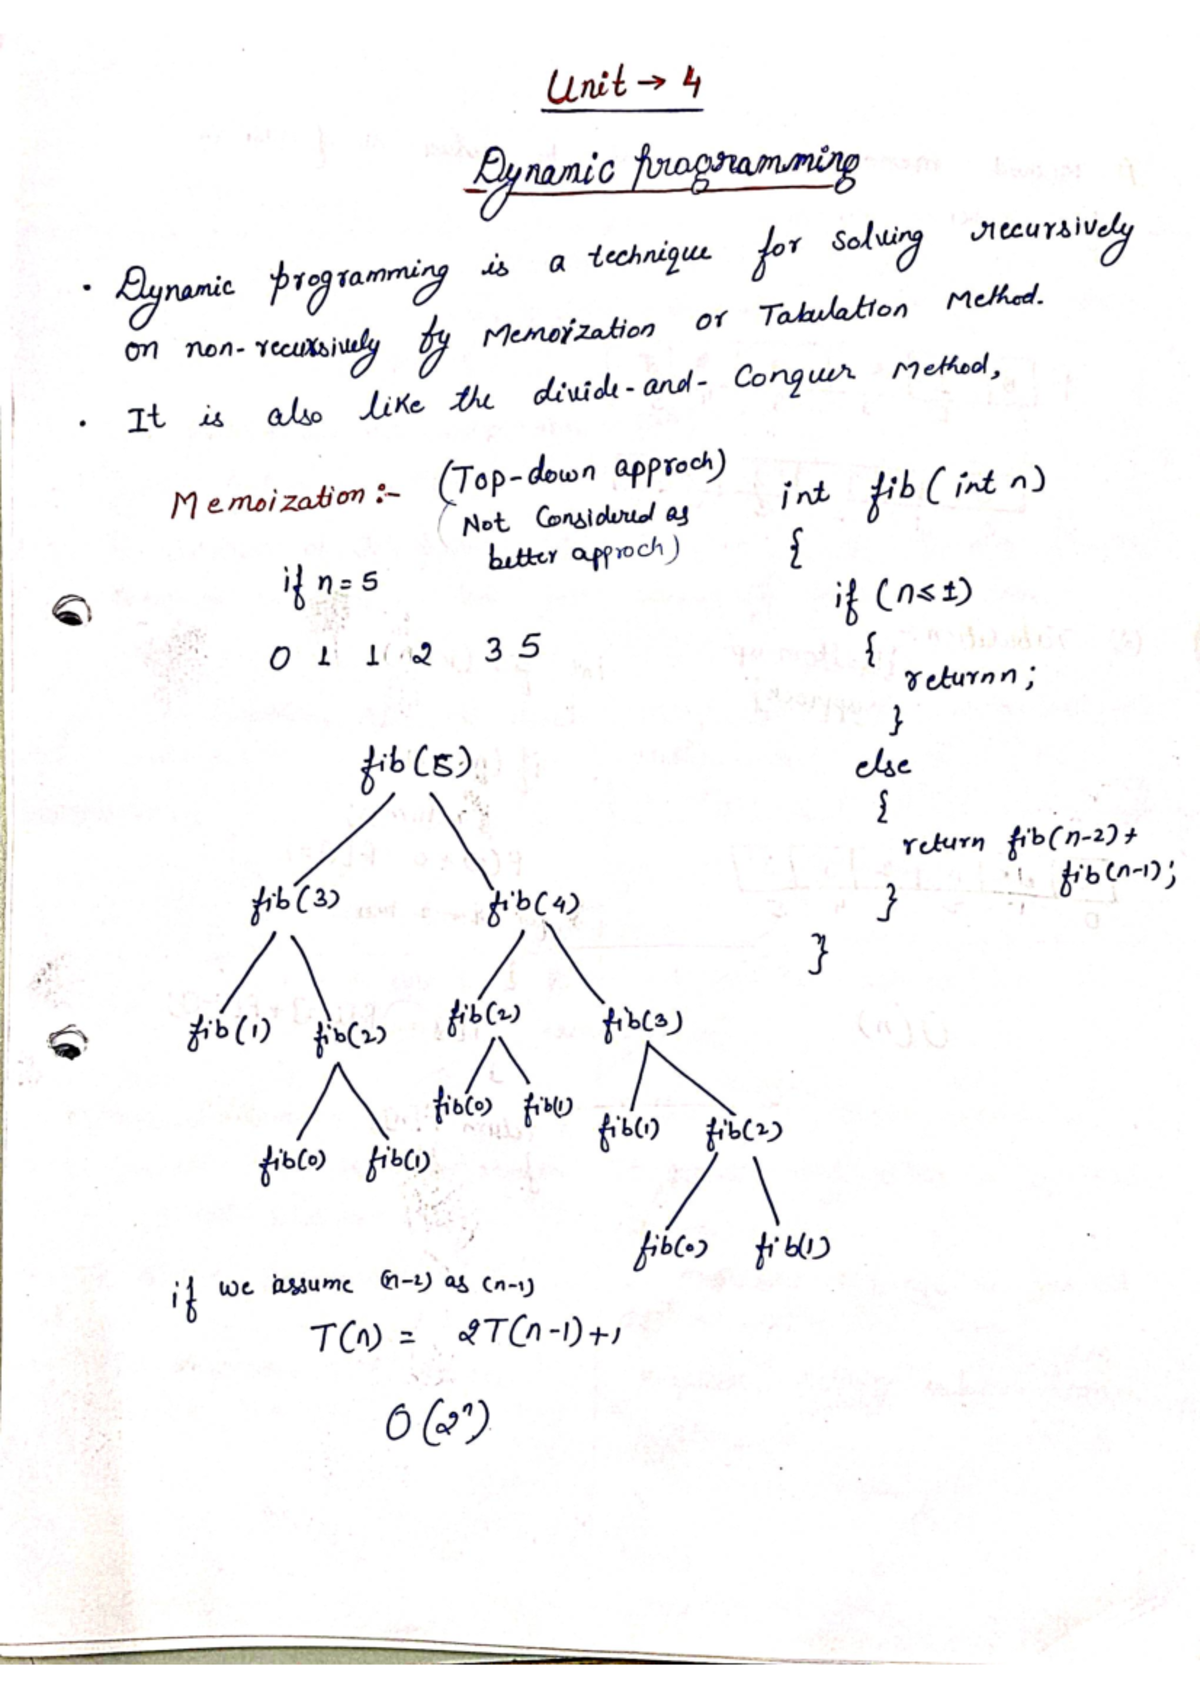 Unit → 4
Dynamic programming
• Dynamic programming is a technique for solving recursively
on non-recursively by Memoization or Tabulation Method.
• It is also like the divide-and-Conquer Method,
Memoization :- (Top-down approch)
(Not Considered as
better approch)
if n = 5
0 1 1 2 3 5
int fib ( int n )
{
if ( n ≤ 1 )
{
return n ;
}
else
{
return fib(n-2) +
fib(n-1) ;
}
}
fib(5)
fib(3) fib(4)
fib(1) fib(2) fib(2) fib(3)
fib(0) fib(1) fib(1) fib(2)
fib(0) fib(1)
fib(0) fib(1)
if we assume (n-2) as (n-1)
T(n) = 2T(n-1)+1
O(2ⁿ)